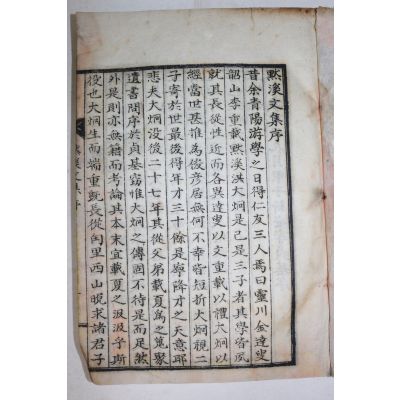 默溪文集序
昔余青陽游學之日得仁友三人焉曰靈川金達叟
韶山李重載默溪洪大炯是已是三子者其學皆夙
就其長從性近而各異達叟以文重載以禮大炯以
經當世甚誰為俊彦居無何不幸皆短折大炯視二
子寄於世最後得年才三十餘是寧降才之天意耶
悲夫大炯没後二十七年其從父弟載夏為之蒐聚
遺書問序於貞基窃惟大炯之傳固不待是而足然
外是則亦無藉而考論其本末宜載夏之汲汲乎斯
役也大炯生而端重既長從闾里西山晚求諸君子
默溪文集序